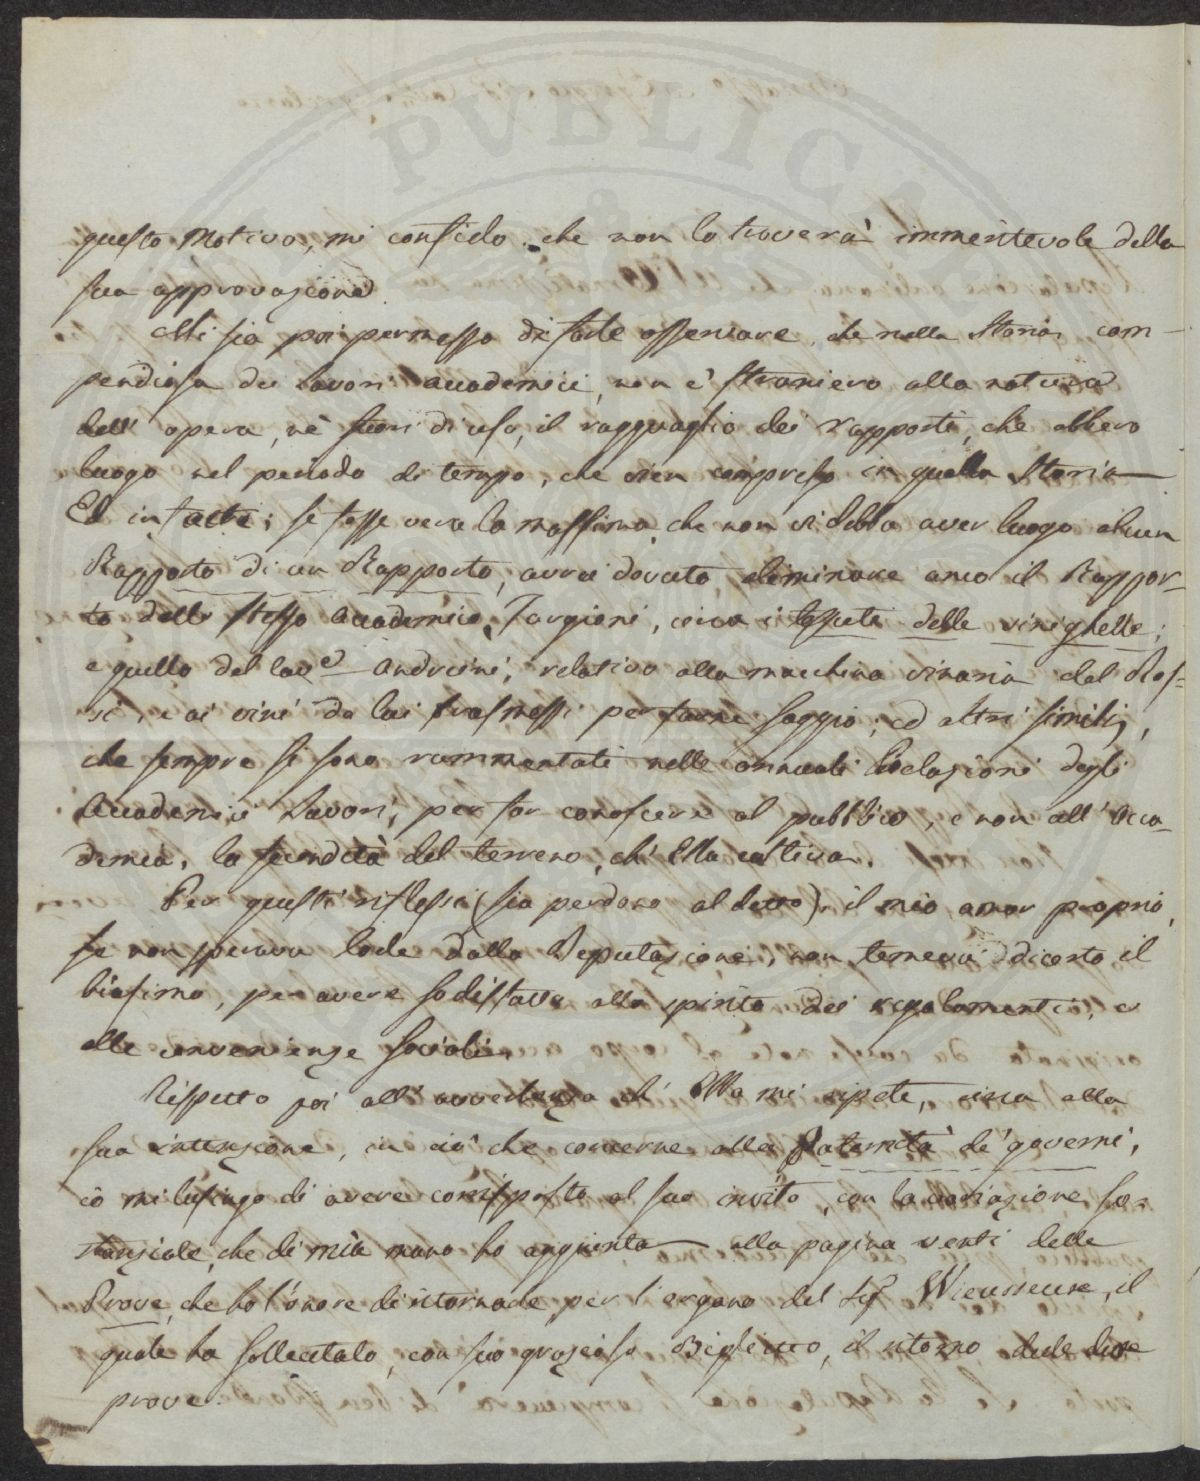 PVBLICA
questo Motivo, mi confido che non lo troverà immeritevole della
sua approvazione.
Mi sia poi permesso di farle osservare, che nella Storia com-
pendiosa dei lavori accademici, non è straniero alla natura
dell' opera, nè fuori di uso, il ragguaglio dei rapporti, che ebbero
luogo nel periodo di tempo, che vien compreso in quella Storia
Ed infatti; se fosse vera la massima, che non vi debba aver luogo alcun
Rapporto di un Rapporto, avrei dovuto eliminare anco il Rappor-
to dello stesso accademico Targioni, circa i tessuti delle vinighelle;
e quello del Cav.e Andreini, relativo alla macchina vinaria del Ros-
si, e ai vini da lui trasmessi per farne saggio; ed altri simili,
che sempre si sono rammentati nelle annuali Relazioni degli
Accademici Lavori, per far conoscere al pubblico, e non all' Acca-
demia, la fecondità del terreno, ch' Ella coltiva.
Per questi riflessi (sia perdono al detto), il mio amor proprio,
se non sperava lode dalla Deputazione, non temeva di certo il
biasimo, per avere sodisfatto allo spirito dei regolamenti, e
alle convenienze sociali.
Rispetto poi all' avvertenza ch' Ella mi ripete, circa alla
sua intenzione, in ciò che concerne alla Paternità de' governi,
io mi lusingo di avere corrisposto al suo invito, con la variazione so-
stanziale, che di mia mano ho aggiunta alla pagina venti delle
Prove, che ho l'onore di ritornarle per l'organo del Sig. Wieusseux, il
quale ha sollecitato, con suo grazioso Biglietto, il ritorno delle dette
prove.